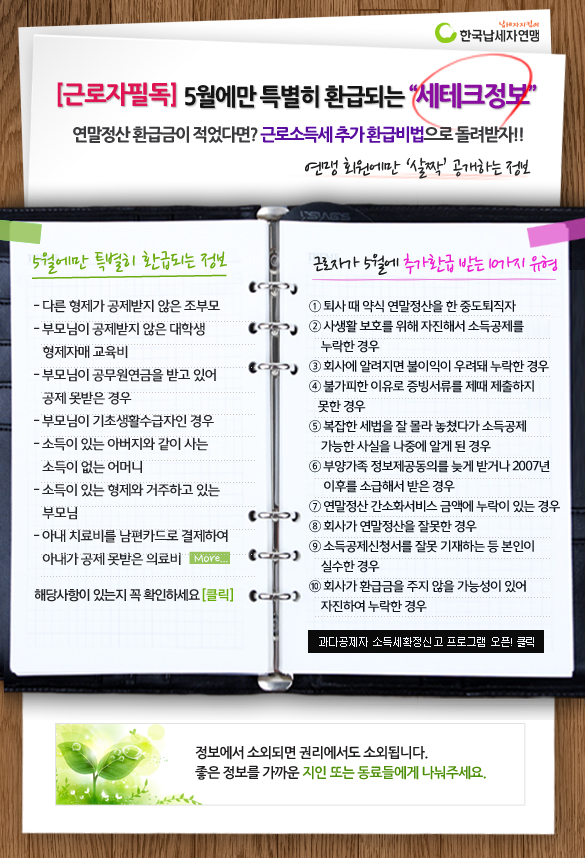 납세자지킴이
한국납세자연맹
[근로자필독] 5월에만 특별히 환급되는 “세테크정보”
연말정산 환급금이 적었다면? 근로소득세 추가 환급비법으로 돌려받자!!
연맹 회원에만 ‘살짝’ 공개하는 정보
5월에만 특별히 환급되는 정보
- 다른 형제가 공제받지 않은 조부모
- 부모님이 공제받지 않은 대학생
형제자매 교육비
- 부모님이 공무원연금을 받고 있어
공제 못받은 경우
- 부모님이 기초생활수급자인 경우
- 소득이 있는 아버지와 같이 사는
소득이 없는 어머니
- 소득이 있는 형제와 거주하고 있는
부모님
- 아내 치료비를 남편카드로 결제하여
아내가 공제 못받은 의료비 More...
해당사항이 있는지 꼭 확인하세요 [클릭]
근로자가 5월에 추가환급 받는 10가지 유형
① 퇴사 때 약식 연말정산을 한 중도퇴직자
② 사생활 보호를 위해 자진해서 소득공제를
누락한 경우
③ 회사에 알려지면 불이익이 우려돼 누락한 경우
④ 불가피한 이유로 증빙서류를 제때 제출하지
못한 경우
⑤ 복잡한 세법을 잘 몰라 놓쳤다가 소득공제
가능한 사실을 나중에 알게 된 경우
⑥ 부양가족 정보제공동의를 늦게 받거나 2007년
이후를 소급해서 받은 경우
⑦ 연말정산 간소화서비스 금액에 누락이 있는 경우
⑧ 회사가 연말정산을 잘못한 경우
⑨ 소득공제신청서를 잘못 기재하는 등 본인이
실수한 경우
⑩ 회사가 환급금을 주지 않을 가능성이 있어
자진하여 누락한 경우
과다공제자 소득세확정신고 프로그램 오픈! 클릭
정보에서 소외되면 권리에서도 소외됩니다.
좋은 정보를 가까운 지인 또는 동료들에게 나눠주세요.